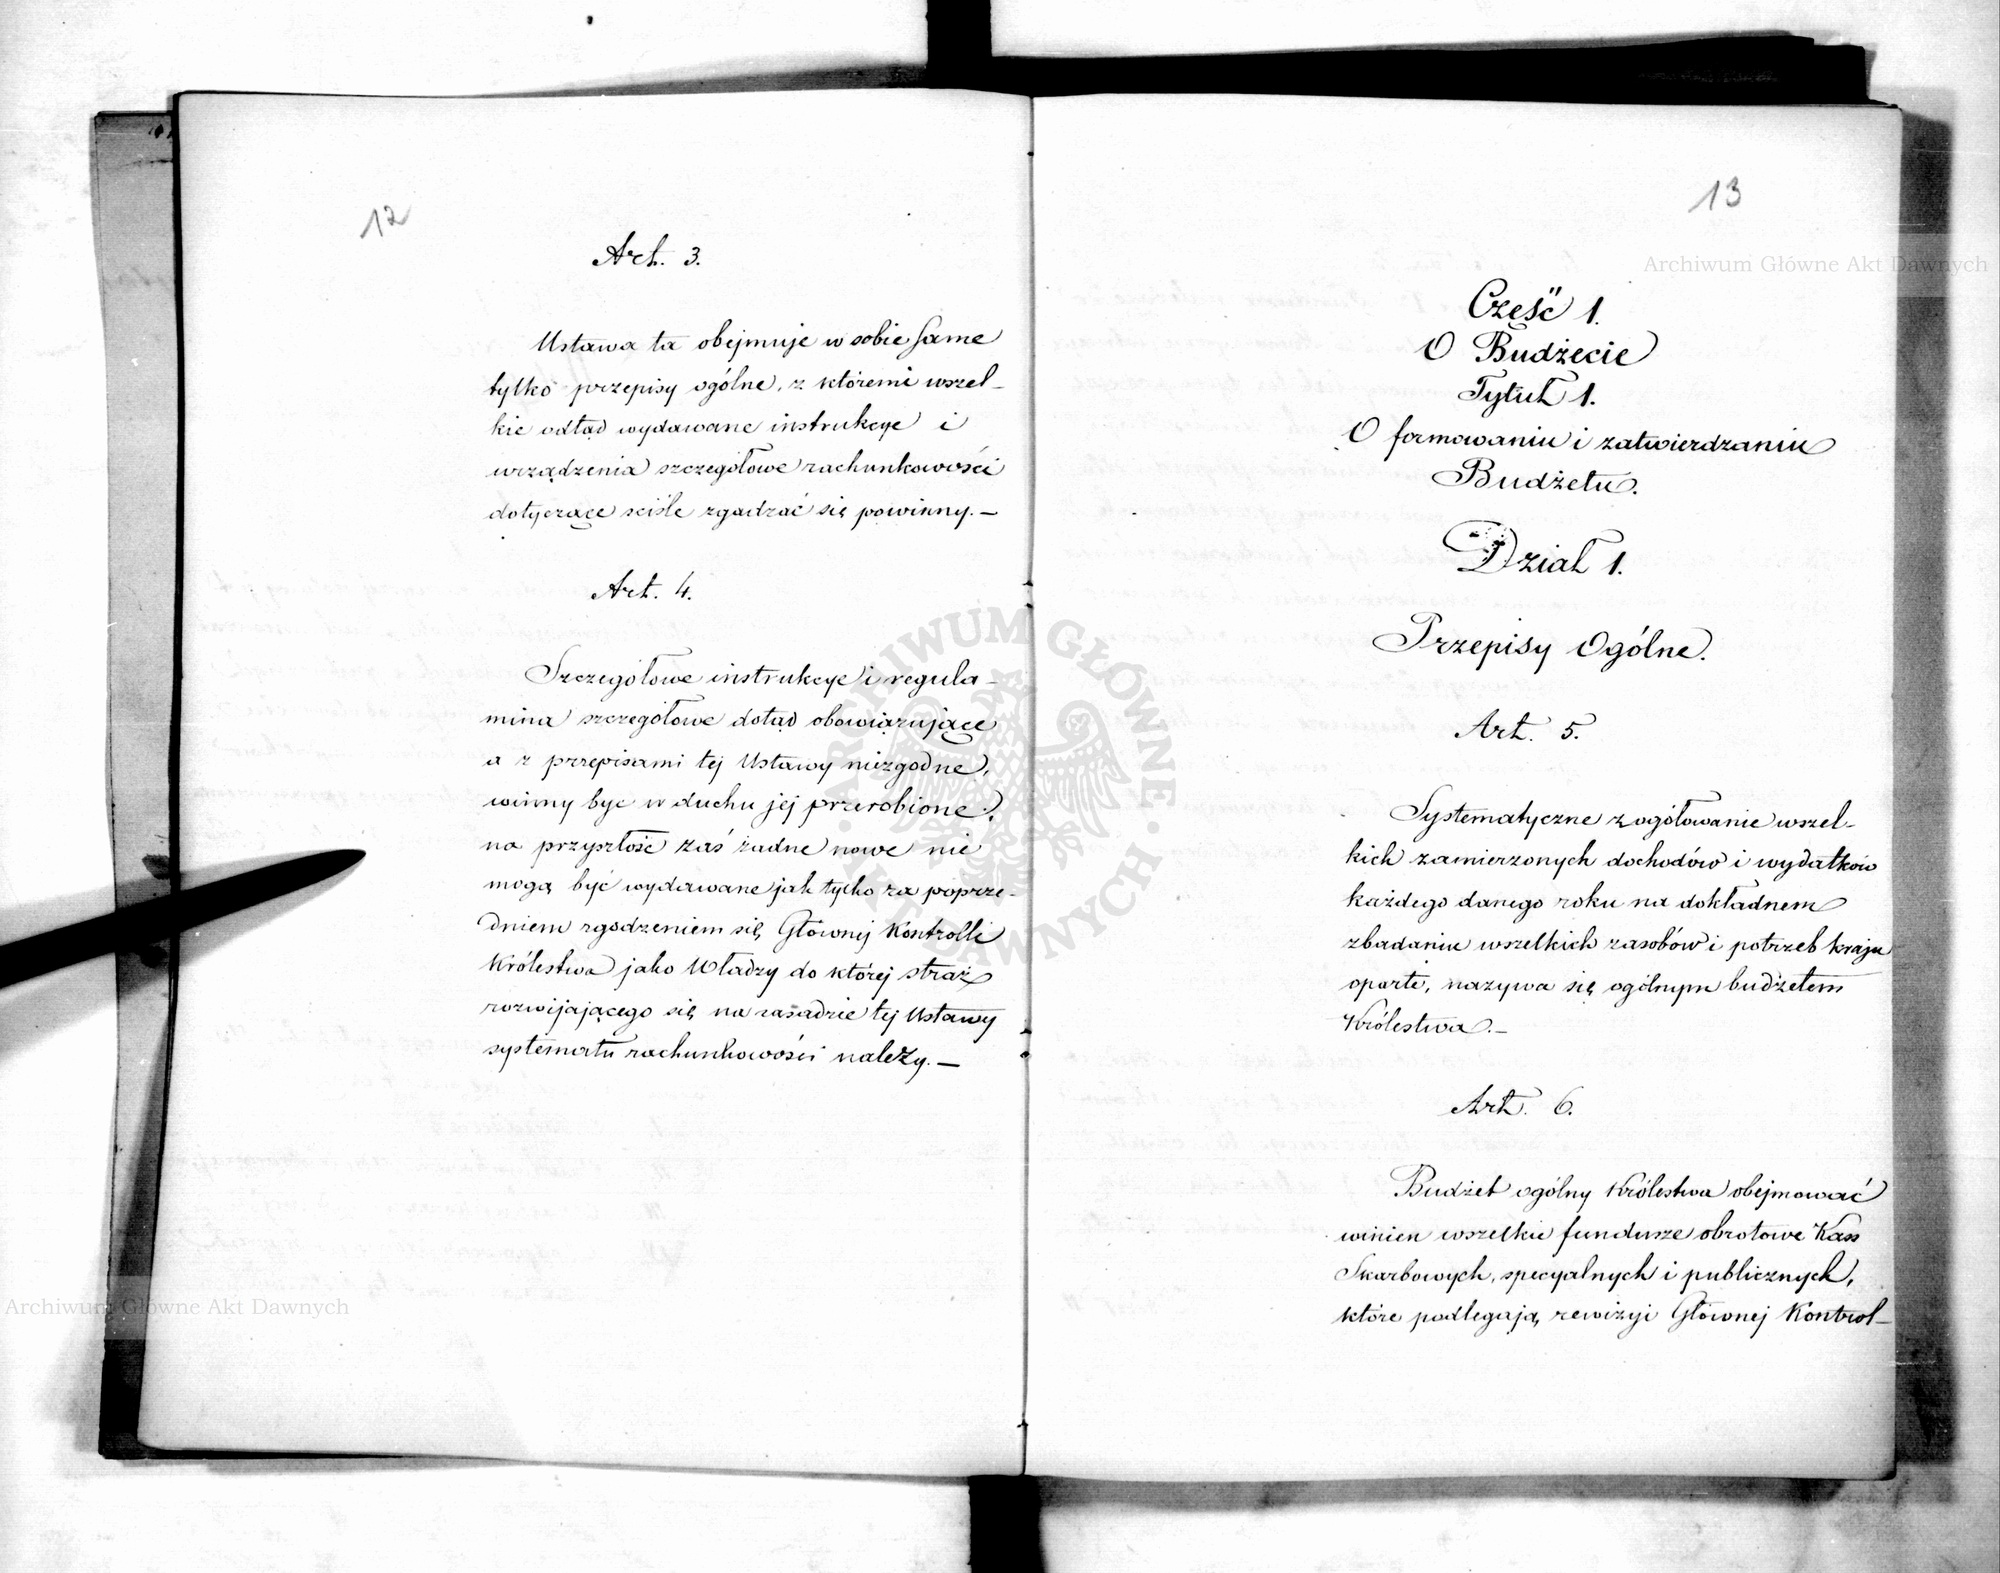 12
Art. 3.
Ustawa ta obejmuje w sobie same
tylko przepisy ogólne, z któremi wszel-
kie odtąd wydawane instrukcye i
urządzenia szczegółowe rachunkowości
dotyczące sciśle zgadzać się powinny. —
Art. 4.
Szczegółowe instrukcye i regula-
mina szczegółowe dotąd obowiązujące
a z przepisami tej Ustawy niezgodne,
winny być w duchu jej przerobione,
na przyszłość zaś żadne nowe nie
mogą być wydawane jak tylko za poprze-
dniem zgodzeniem się Głównej Kontrolli
Królestwa jako Władzy do której straż
rozwijającego się na zasadzie tej Ustawy
systematu rachunkowości należy. —
13
Część 1.
O Budżecie
Tytuł 1.
O formowaniu i zatwierdzaniu
Budżetu.
Dział 1.
Przepisy Ogólne.
Art. 5.
Systematyczne zogółowanie wszel-
kich zamierzonych dochodów i wydatków
każdego danego roku na dokładnem
zbadaniu wszelkich zasobów i potrzeb kraju
oparte, nazywa się ogólnym budżetem
Królestwa. —
Art. 6.
Budżet ogólny Królestwa obejmować
winien wszelkie fundusze obrotowe Kass
Skarbowych, specyalnych i publicznych,
które podlegają rewizyi Głównej Kontrol-
Archiwum Główne Akt Dawnych
Archiwum Główne Akt Dawnych
ARCHIWUM GŁÓWNE AKT DAWNYCH